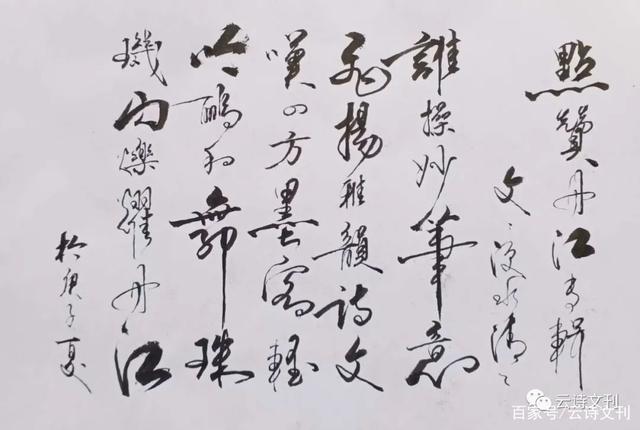 點贊丹江專輯
文：水清
誰操妙筆意
飛揚雅韻詩文
嘆四方墨客輕
吟鹂和舞珠
璣闪爍耀丹江
於庚子夏
云诗文刊
百家号/云诗文刊